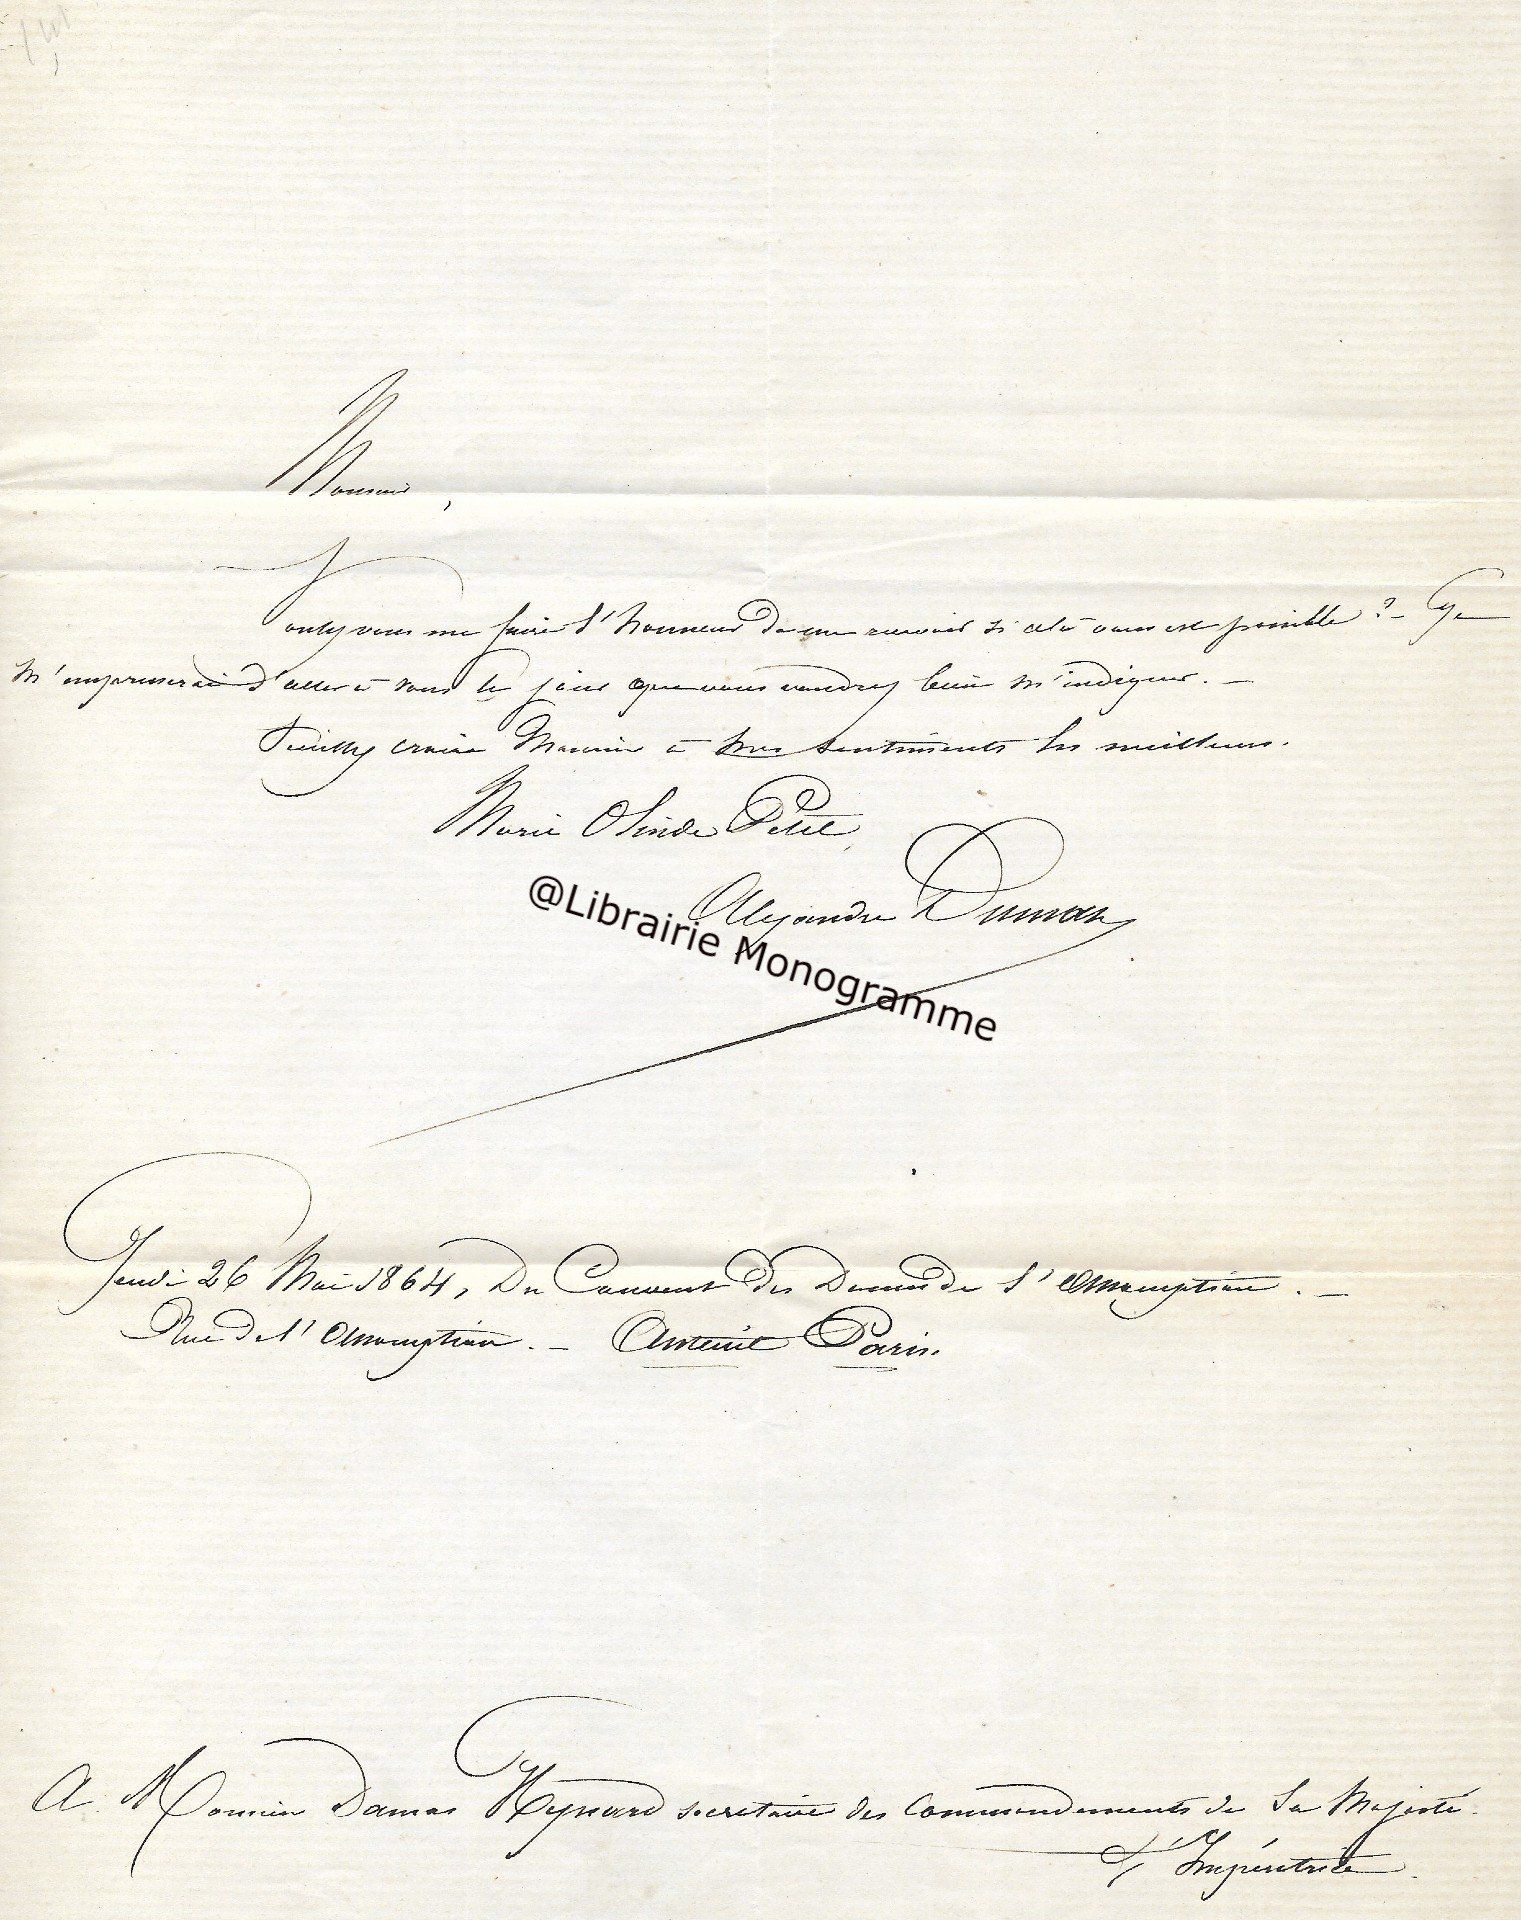 Monsieur,
Voulez vous me faire l'honneur de me recevoir si cela vous est possible ? - Je
m'empresserai d'aller à vous le jour que vous voudrez bien m'indiquer. -
Veuillez croire Monsieur à mes sentiments les meilleurs.
Marie Olinde Petel,
Alexandre Dumas
@Librairie Monogramme
Jeudi 26 Mai 1864, Du Couvent des Dames de l'Assomption. -
Rue de l'Assomption. - Auteuil Paris.
A Monsieur Damas Hynard secretaire des Commandements de Sa Majesté
L'Impératrice.